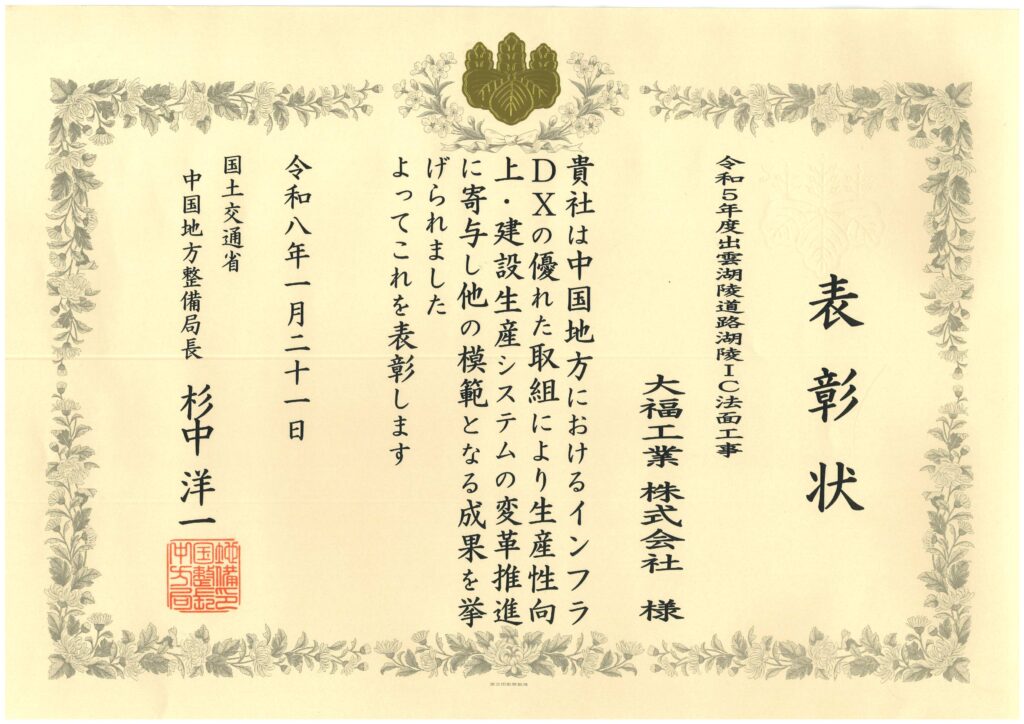 表彰状
令和5年度出雲湖陵道路湖陵IC法面工事
大福工業 株式会社 様
貴社は中国地方におけるインフラ
DXの優れた取組により生産性向
上・建設生産システムの変革推進
に寄与し他の模範となる成果を挙
げられました
よってこれを表彰します
令和八年一月二十一日
国土交通省
中国地方整備局長
杉中 洋一